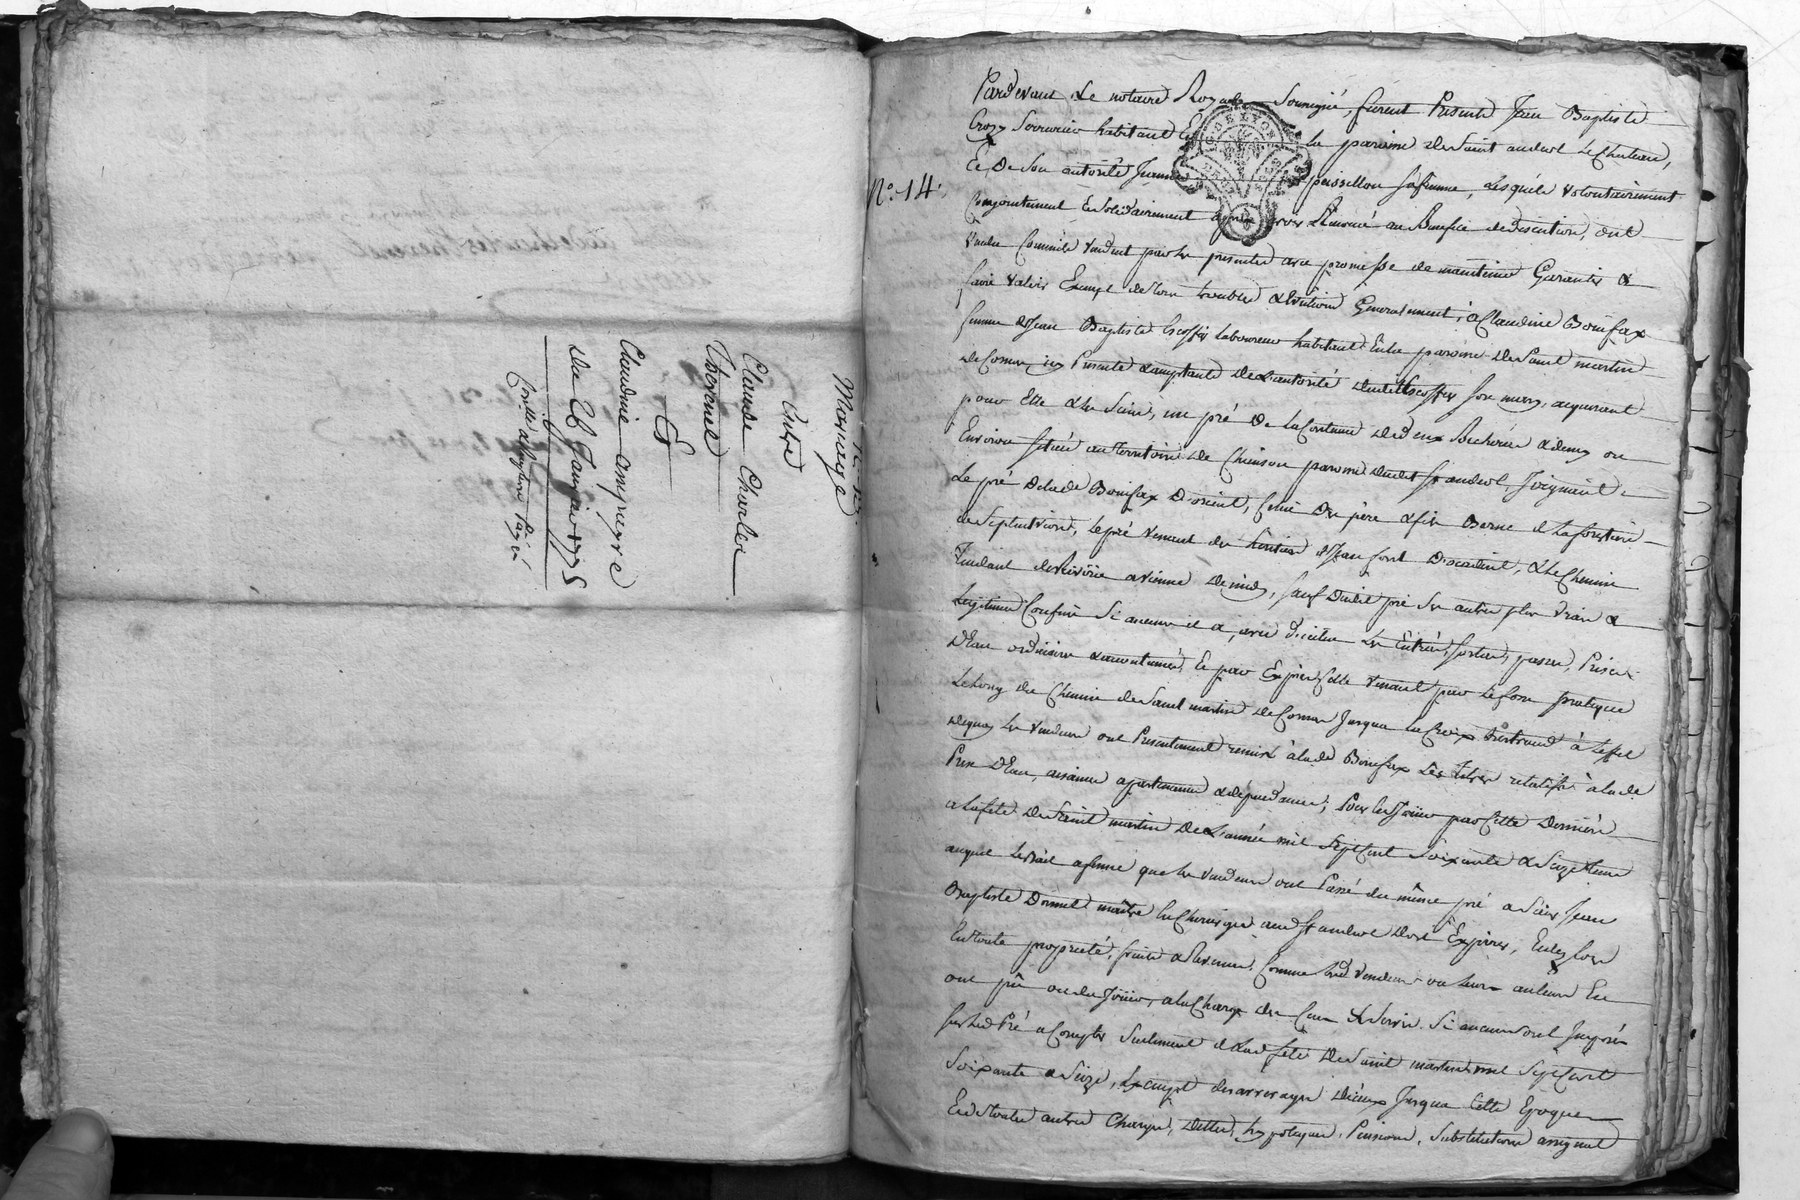 N.° 13.
Mariage
Entre
Claude Charles
Thevenet
Et
Claudine ampnegre
Du 26 Janvier 1775
N.° 14.
G. DE LYON
Pardevant Le notaire Royal Soussigné, furent Présents Jean Baptiste
Crozy Serrurier habitant En la paroisse de Saint andeol Le Chateau,
Et De Son autorité Jeanne poisillon sa femme, Lesquels volontairement
Conjointement Ensolidairement après avoir Renoncé au Benefice de discution, ont
Vendu Comme ils Vendent par les presentes avec promesse de maintenir Garantir &
faire valoir Exempt de tous troubles & Evictions Generalement, à Claudine Bonifax
femme de Jean Baptiste Escoffier Laboureur habitant En la paroisse De Saint martin
De Cornas icy Presente & acceptante De L'autorité dudit Escoffier Son mary, acquerant
pour Elle & Les Siens, un pré De la Contenue De deux Bicherées & demy ou
Environ Situé au territoire De Chinson paroisse dudit St andeol, Joignant
Le pré De lade Bonifax D'orient, Celui Des père & fils Berne & La forestiere
de Septentrion, Le pré Venant des heritiers de Jean font D'occident, & Le Chemin
Tendant de Rivoire a vienne De midy, Sauf Dudit pré Ses autres plus Vrais &
Legitimes Confins Si aucuns il a, avec D'icelui Les Entrées, Sorties, passer, Prise
D'Eau ordinaire & accoutumée, Et par Exprès Celle Venant par Le fossé pratiqué
Le Long du Chemin de Saint martin De Cornas Jusqua la Croix Bertrand à L'effet
De quoy Les Vendeurs ont Presentement remis à lade Bonifax Les Titres relatifs à lade
Prise D'Eau, aisances appartenances & dépendances; Pour Les Jouir par Cette Derniere
a la fête De Saint martin De L'année mil Sept Cent Soixante & Seize tems
auquel Le Bail a ferme que Les Vendeurs ont Passé du même pré a Sieur Jean
Baptiste Donnet maître En Chirurgie aud St andeol Doit Expirer, Et dez Lors
En toute proprieté, fruits & Revenus, Comme Lesd Vendeurs ou Leurs auteurs En
ont pû ou du Jouir, a la Charge des Cens & Servis Si aucuns Sont Imposés
Sur Led Pré a Compter Seulement de Lad fête De Saint martin mil Sept Cent
Soixante & Seize, Exempt des arrerages D'iceux Jusqua Cette Epoque
Et de toutes autres Charges, Dettes, hypoteques, Pensions, Substitutions assignat